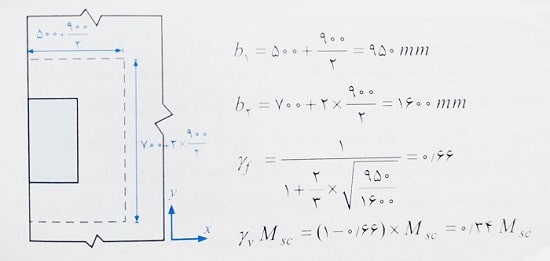 ۵۰۰+۹۰۰/۲
۷۰۰+۲×۹۰۰/۲
y
x
b۱ = ۵۰۰ + ۹۰۰/۲ = ۹۵۰ mm
b۲ = ۷۰۰ + ۲ × ۹۰۰/۲ = ۱۶۰۰ mm
γf = ۱/(۱ + ۲/۳ × √(۹۵۰/۱۶۰۰)) = ۰/۶۶
γv Msc = (۱ − ۰/۶۶) × Msc = ۰/۳۴ Msc